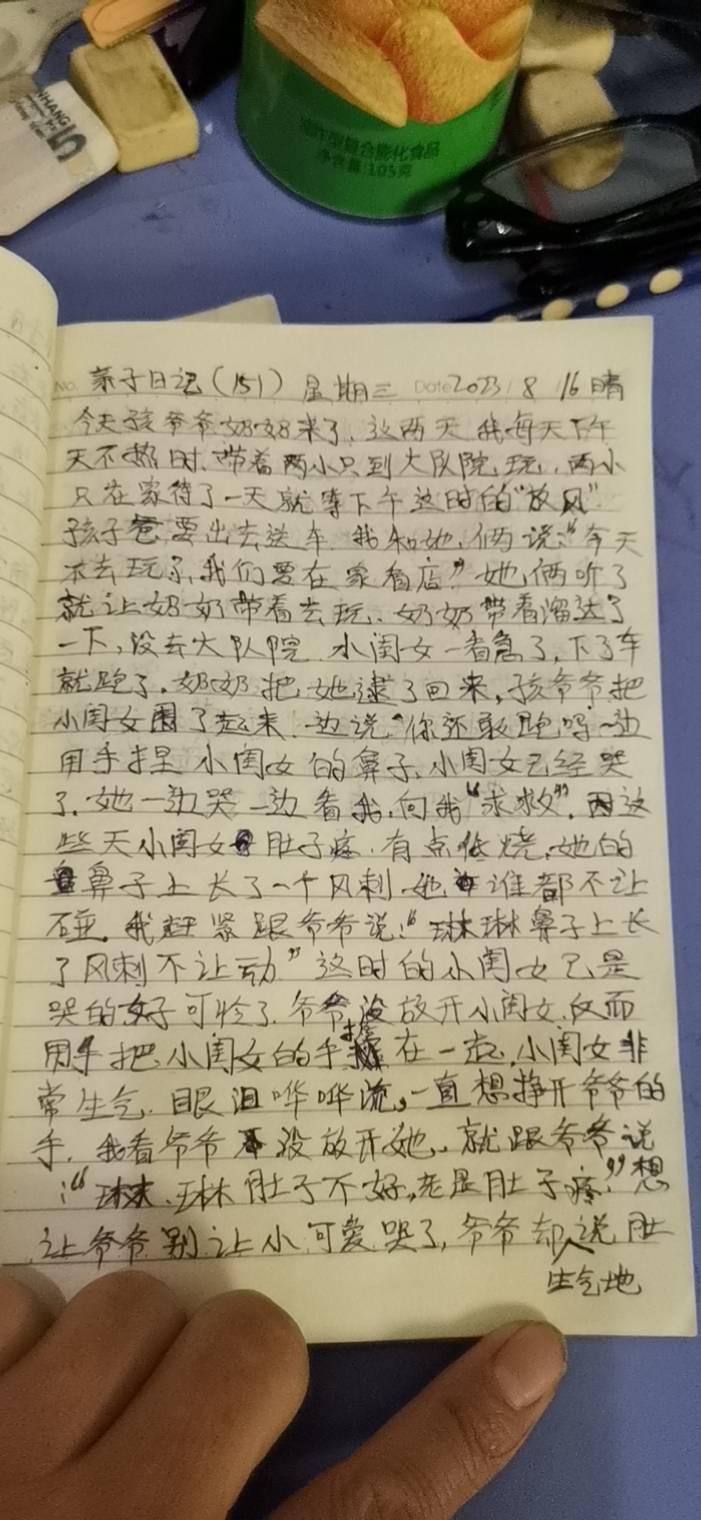 NHANG
5
油炸型复合膨化食品
净含量:105克
No. 亲子日记(151) 星期三 Date 2023 / 8 / 16 晴
今天孩爷爷奶奶来了,这两天我每天下午
天不热时,带着两小只到大队院玩,两小
只在家待了一天就等下午这时的“放风”
孩子爸要出去送车.我和她俩说:“今天
不去玩了,我们要在家看店”她俩听了
就让奶奶带着去玩.奶奶带着溜达了
一下,没去大队院.小闺女一着急了,下了车
就跑了.奶奶把她逮了回来,孩爷爷把
小闺女围了起来.一边说“你还敢跑吗”一边
用手捏小闺女的鼻子,小闺女已经哭
了.她一边哭一边看我,向我“求救”.因这
些天小闺女肚子疼.有点低烧,她的
鼻子上长了一个风刺.她谁都不让
碰.我赶紧跟爷爷说:“琳琳鼻子上长
了风刺不让动”这时的小闺女已是
哭的好可怜了.爷爷没放开小闺女.反而
用手把小闺女的手握在一起.小闺女非
常生气.眼泪哗哗流,一直想挣开爷爷的
手.我看爷爷没放开她,就跟爷爷说
:“琳琳肚子不好,老是肚子疼.”想
让爷爷别让小可爱哭了,爷爷却说肚
生气地